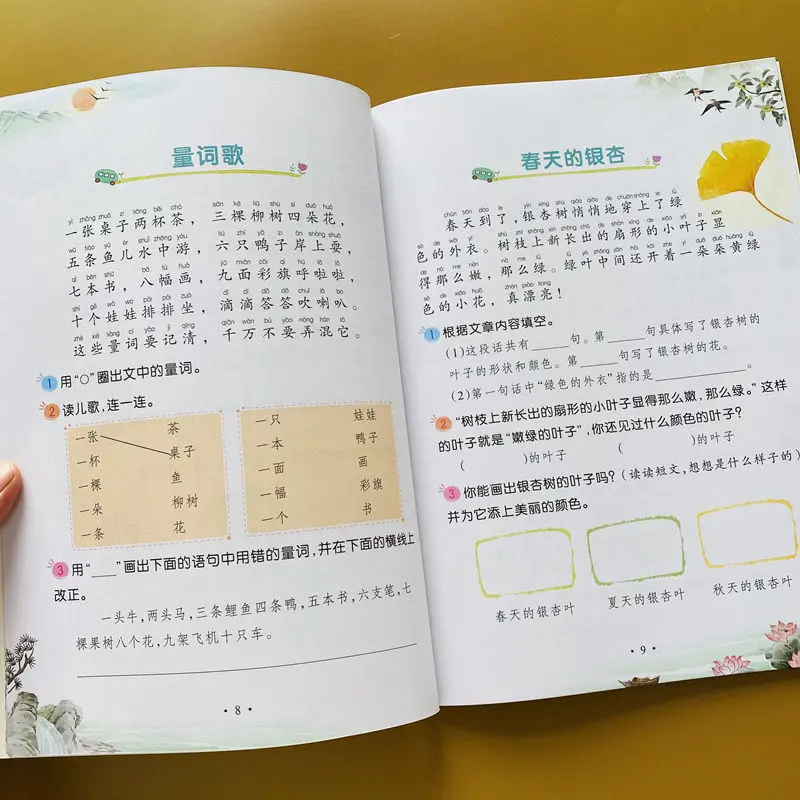 量词歌
一张桌子两杯茶，三棵柳树四朵花，
五条鱼儿水中游，六只鸭子岸上耍，
七本书，八幅画，九面彩旗呼啦啦，
十个娃娃排排坐，滴滴答答吹喇叭。
这些量词要记清，千万不要弄混它。
1 用“○”圈出文中的量词。
2 读儿歌，连一连。
一张 茶
一杯 桌子
一棵 鱼
一朵 柳树
一条 花
一只 娃娃
一本 鸭子
一面 画
一幅 彩旗
一个 书
3 用“___”画出下面的语句中用错的量词，并在下面的横线上
改正。
一头牛，两头马，三条鲤鱼四条鸭，五本书，六支笔，七
棵果树八个花，九架飞机十只车。
· 8 ·
春天的银杏
春天到了，银杏树悄悄地穿上了绿
色的外衣。树枝上新长出的扇形的小叶子显
得那么嫩，那么绿。绿叶中间还开着一朵朵黄绿
色的小花，真漂亮！
1 根据文章内容填空。
(1)这段话共有______句。第______句具体写了银杏树的
叶子的形状和颜色。第______句写了银杏树的花。
(2)第一句话中“绿色的外衣”指的是______________。
2 “树枝上新长出的扇形的小叶子显得那么嫩，那么绿。”这样
的叶子就是“嫩绿的叶子”，你还见过什么颜色的叶子？
（ ）的叶子 （ ）的叶子
3 你能画出银杏树的叶子吗？（读读短文，想想是什么样子的）
并为它添上美丽的颜色。
春天的银杏叶 夏天的银杏叶 秋天的银杏叶
· 9 ·